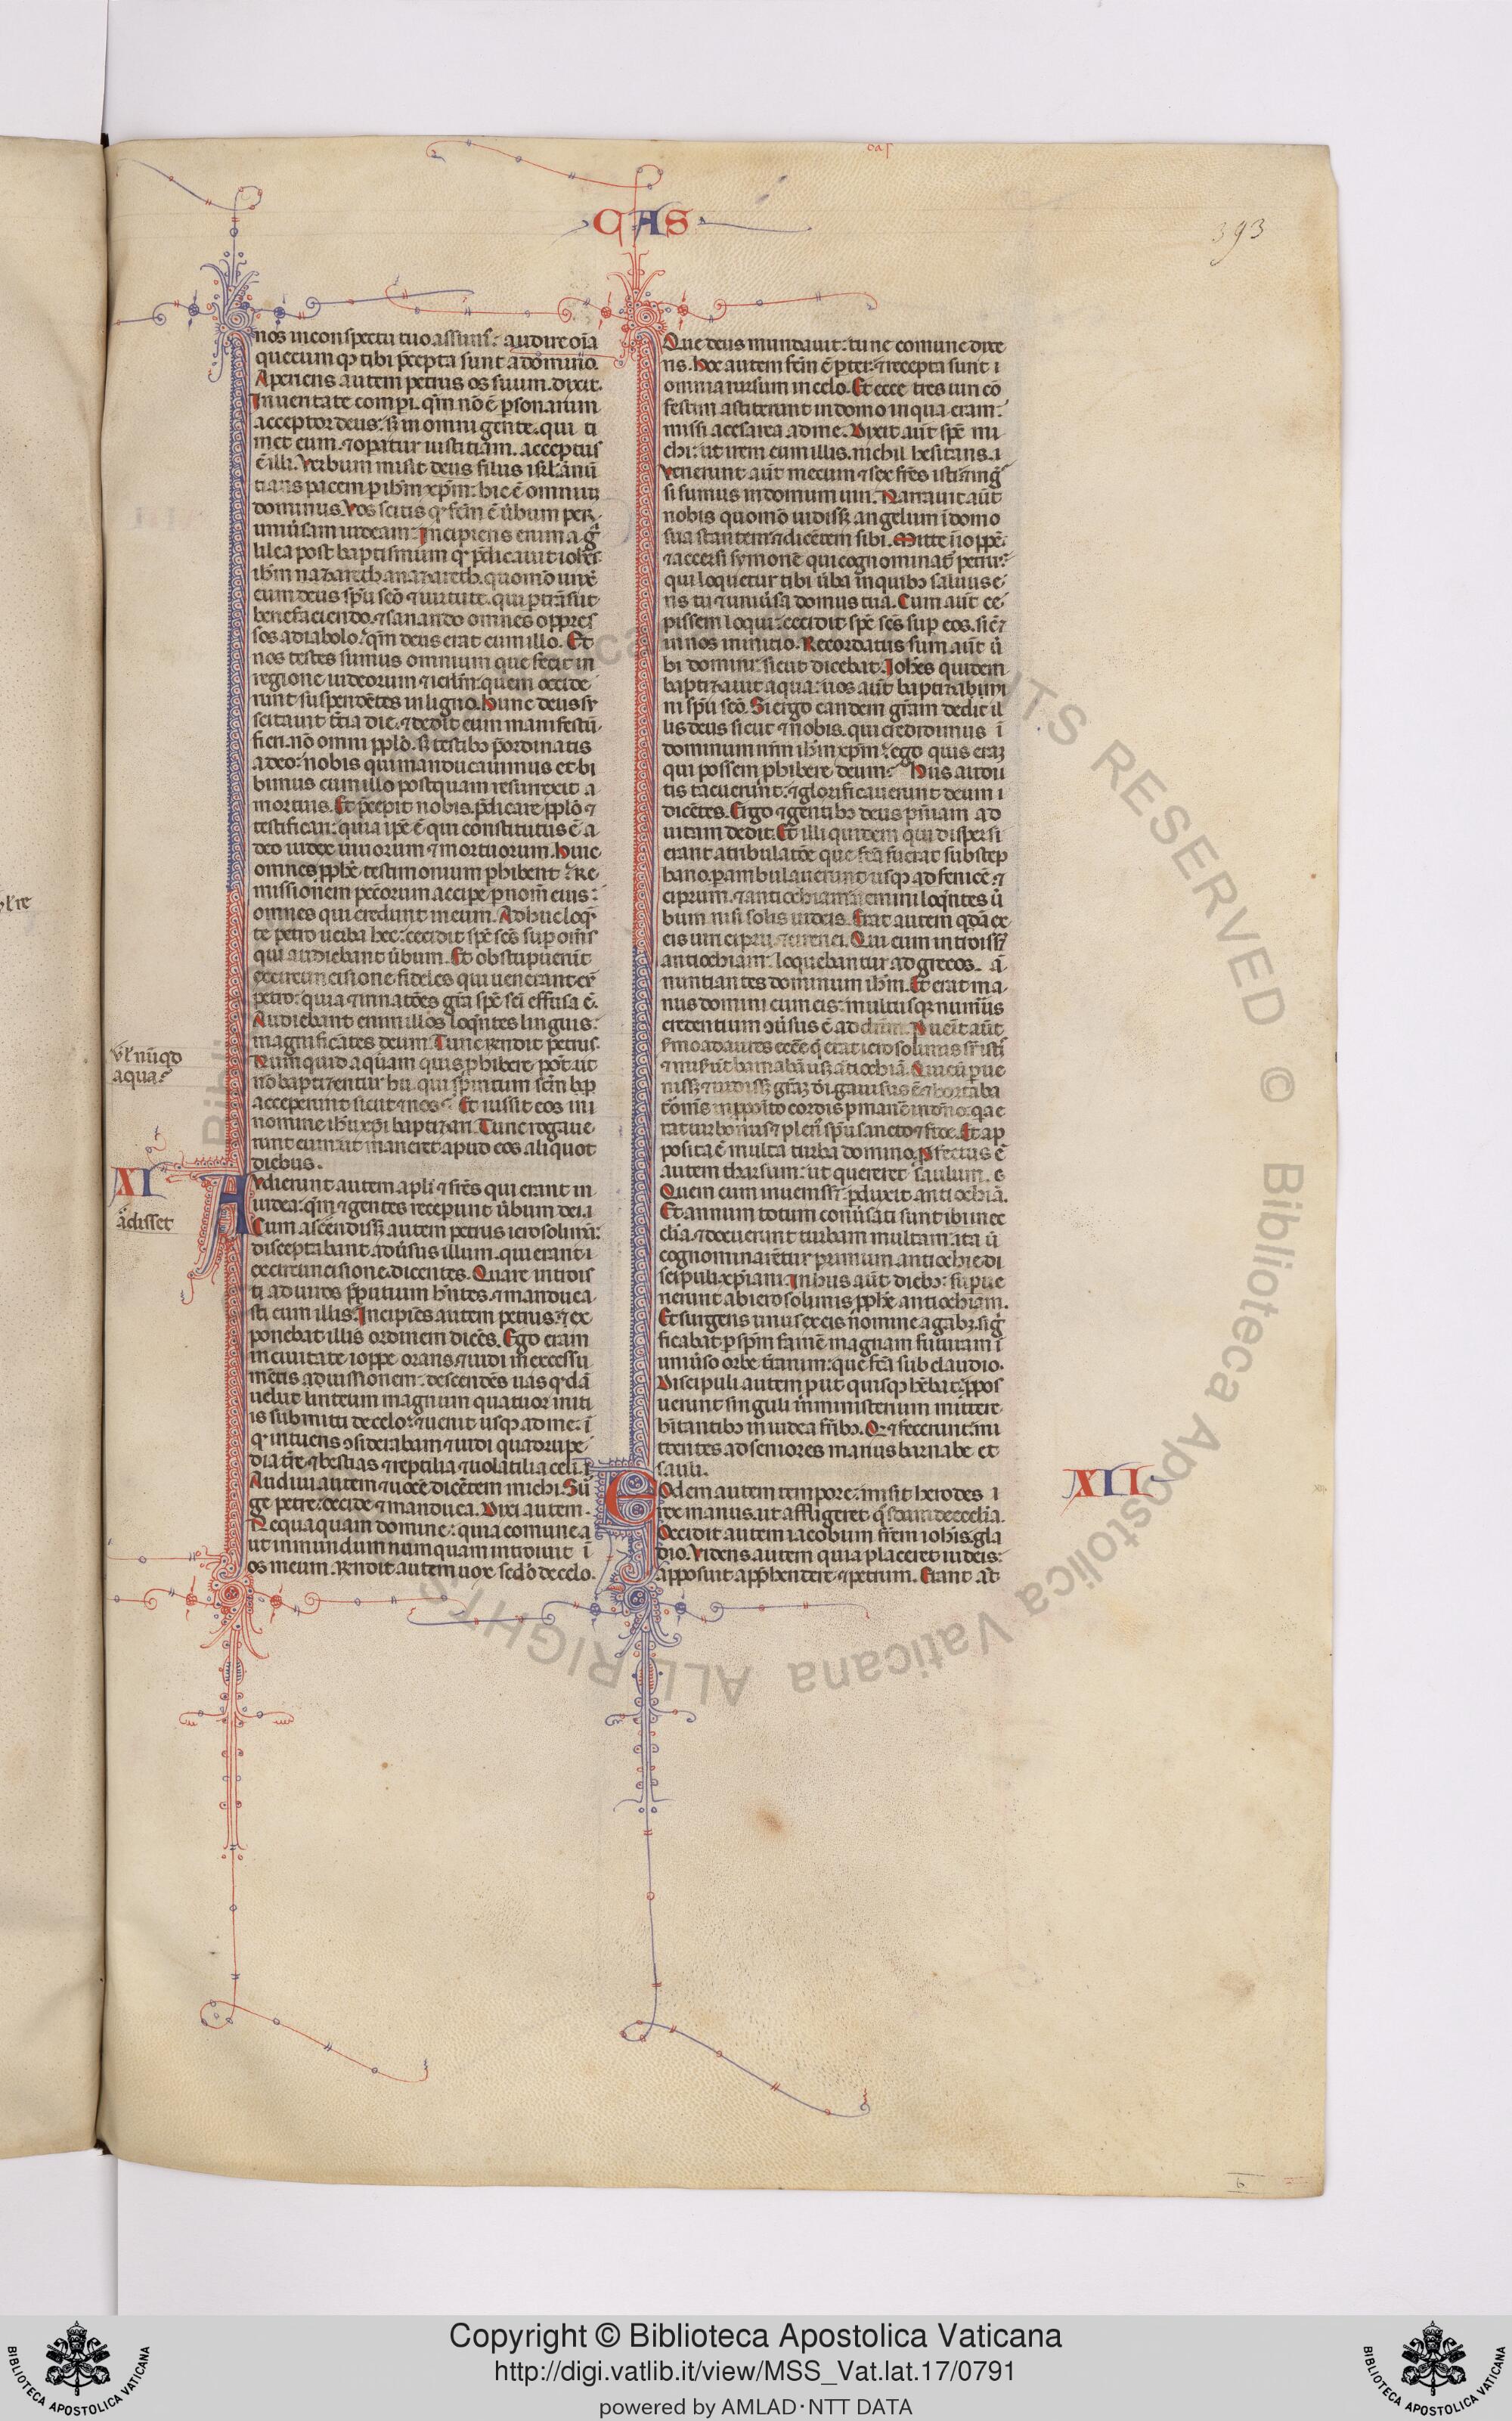 cas
CAS
393
nos in conspectu tuo assum᷒: audire oīa
quecumqꝫ tibi p̄cepta sunt a domino.
Aperiens autem petrus os suum. dixit.
In ueritate comperi. qm̄ nō ē ꝑsonarum
acceptor deus: sꝫ in omni gente. qui ti
met eum. ⁊ oꝑatur iustitiam. acceptus
ē illi. Verbum misit deus filiis isrl̄. ānū
tians pacem ꝑ ihm̄ xpm̄: hic ē omniuꝫ
dominus. Vos scitis qđ fcm̄ ē ūbum per
uniūsam iudeam: Incipiens enim a ga
lilea post baptismum qđ p̄dicauit ioh̄es:
ihm̄ nazareth a nazareth. quomō unxͭ
eum deus spū scō ⁊ uirtute. qui ꝑtrāsiit
benefaciendo. ⁊ sanando omnes oppres
sos a diabolo. qm̄ deus erat cum illo. Et
nos testes sumus omnium que fecit in
regione iudeorum ⁊ ierl̄m: quem occide
runt suspendētes in ligno. Hunc deus su
scitauit t̄cia die. ⁊ dedit eum manifestū
fieri. nō omni pplō. sꝫ testibꝫ p̄ordinatis
a deo: nobis qui manducauimus et bi
bimus cum illo postquam resurrexit a
mortuis. Et p̄cepit nobis. p̄dicare pplō ⁊
testificari: quia ip̄e ē qui constitutus ē a
deo iudex uiuorum ⁊ mortuorum. Huic
omnes pph̄e testimonium ꝑhibent. Re
missionem pec̄orum accipe ꝑ nom̄ eius:
omnes qui credunt in eum. Adhuc loqn̄
te petro uerba hec: cecidit sp̄c sc̄s sup om̄s
qui audiebant ūbum. Et obstupuer̄t
ex circuncisione fideles qui uenerant cū
petro: quia ⁊ in natōes grā sp̄c sci effusa ē.
Audiebant enim illos loqn̄tes linguis:
magnificātes deum. Tunc rn̄dit petrus.
Numquid aquam quis ꝓhibere pōt: ut
nō baptizentur hii. qui spiritum scm̄ bap
acceperunt sicut ⁊ nos. Et iussit eos in
nomine ihū xpi baptizari. Tunc rogaue
runt eum: ut maneret apud eos aliquot
diebus.
ul̄ nūqd
aqua.
XI
Audierunt autem apl̄i ⁊ fr̄es qui erant in
iudea: qm̄ ⁊ gentes recepunt ūbum dei.
Cum ascendissꝫ autem petrus ierosolimā:
disceptabant adūsus illum. qui erant
ex circuncisione. dicentes. Quare introis
ti ad uiros p̄putium hn̄tes. ⁊ manduca
sti cum illis. Incipiēs autem petrus: ex
ponebat illis ordinem dicēs. Ego eram
in ciuitate ioppe orans. ⁊ uidi in excessu
mētis ad uissionem: descendēs uas qđdā
uelut linteum magnum quatuor initi
is submitti de celo: ⁊ uenit usqꝫ ad me: ī
qđ intuens ↄsiderabam ⁊ uidi quadrupe
dia tr̄e ⁊ bestias ⁊ reptilia ⁊ uolatilia celi.
Audiui autem ⁊ uocē dicētem michi. Sur
ge petre: occide ⁊ manduca. Dixi autem.
Nequaquam domine: quia comune a
ut inmundum numquam introiuit ī
os meum. Rn̄dit autem uox scd̄o de celo.
ādisset
Que deus mundauit: tu ne comune dixe
ris. Hoc autem fcm̄ ē ꝑ ter: ⁊ recepta sunt
omnia rursum in celo. Et ecce tres uiri cō
festim astiterunt in domo in qua eram:
missi a cesarea ad me. Dixit aūt sp̄c mi
chi: ut irem cum illis. nichil hesitans.
Venerunt aūt mecum ⁊ sex fr̄es isti: ⁊ ing̃
si sumus in domum uiri. Narrauit aūt
nobis quomō uidissꝫ angelum ī domo
sua stantem ⁊ dicētem sibi. Mitte ī ioppē.
⁊ accersi symonē qui cognominat᷒ petrus:
qui loquetur tibi ūba in quibꝫ saluus e
ris tu ⁊ uniūsa domus tua. Cum aūt ce
pissem loqui: cecidit sp̄c sc̄s sup eos. sic̄
in nos in initio. Recordatus sum aūt ū
bi domini: sicut dicebat. Ioh̄es quidem
baptizauit aqua: uos aūt baptizabimi
ni spū scō. Si ergo eandem grām dedit il
lis deus sicut ⁊ nobis. qui credidimus ī
dominum nr̄m ihm̄ xpm̄: ego quis eraꝫ
qui possem ꝓhibere deum. Hiis audi
tis tacuerunt: ⁊ glorificauerunt deum
dicētes. Ergo ⁊ gentibꝫ deus pn̄iam ad
uitam dedit. Et illi quidem qui dispersi
erant a tribulatōe que fcā fuerat sub step
hano. ꝑambulauerunt usqꝫ ad fenicē. ⁊
ciprum. ⁊ antiochiam: nemini loqn̄tes ū
bum. nisi solis iudeis. Erat autem qđā ex
eis uiri ciprii ⁊ cirenei. Qui cum introissꝫ
antiochiam: loquebantur ad grecos. ā
nuntiantes dominum ihm̄. Et erat ma
nus domini cum eis: multusqꝫ num̄us
credentium ↄūsus ē ad dnm̄. Puēit aūt
s̄mo ad aures ecc̄e q̄ erat ierosolimis sr̄ isti
⁊ misr̄t barnabā usqꝫ ātiochiā. Qui cū ꝑue
nissꝫ ⁊ uidissꝫ grāꝫ dī. gauisus ē: ⁊ hortaba
t᷒ om̄s in ꝓposito cordis ꝑmanē in dn̄o: qa e
rat uir bonus ⁊ plen᷒ spū sancto ⁊ fide. Et ap
posita ē multa turba domino. Pfectus ē
autem tharsum: ut quereret saulum.
Quem cum inuenissꝫ: ꝑduxit antiochiā.
Et annum totum conūsati sunt ibi in ec
clīa. ⁊ docuerunt turbam multam: ita ū
cognominarētur primum antiochie di
scipuli xp̄iani. In hiis aūt diebꝫ: supue
nerunt ab ierosolimis pph̄e antiochiam.
Et surgens unus ex eis nomine agabꝫ. sig
ficabat ꝑ spm̄ famē magnam futuram ī
uniūso orbe t̄rarum: que fcā sub claudio.
Discipuli autem put quisqꝫ hēbat: ꝓpos
uerunt singuli in ministerium mittere
hītantibꝫ in iudea fr̄ibꝫ. Qđ ⁊ fecerunt: mi
ttentes ad seniores manus barnabe et
sauli.
XII
Eodem autem tempore: misit herodes
rex manus. ut affligeret qosdam de ecclīa.
Occidit autem iacobum fr̄em ioh̄is. gla
dio. Videns autem quia placeret iudeis:
apposuit appr̄hendere ⁊ petrum. Erant aūt
6
Copyright © Biblioteca Apostolica Vaticana
http://digi.vatlib.it/view/MSS_Vat.lat.17/0791
powered by AMLAD·NTT DATA
BIBLIOTECA APOSTOLICA VATICANA
BIBLIOTECA APOSTOLICA VATICANA